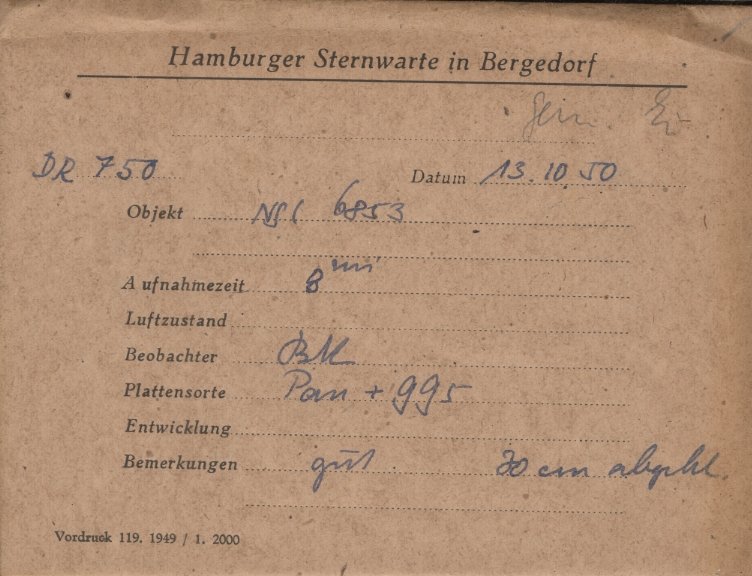 Hamburger Sternwarte in Bergedorf
DR 750 Datum 13.10 50
Objekt NGC 6853
Aufnahmezeit 8 min
Luftzustand
Beobachter
Plattensorte Pan + 995
Entwicklung
Bemerkungen gut 70 cm
Vordruck 119. 1949 / 1. 2000